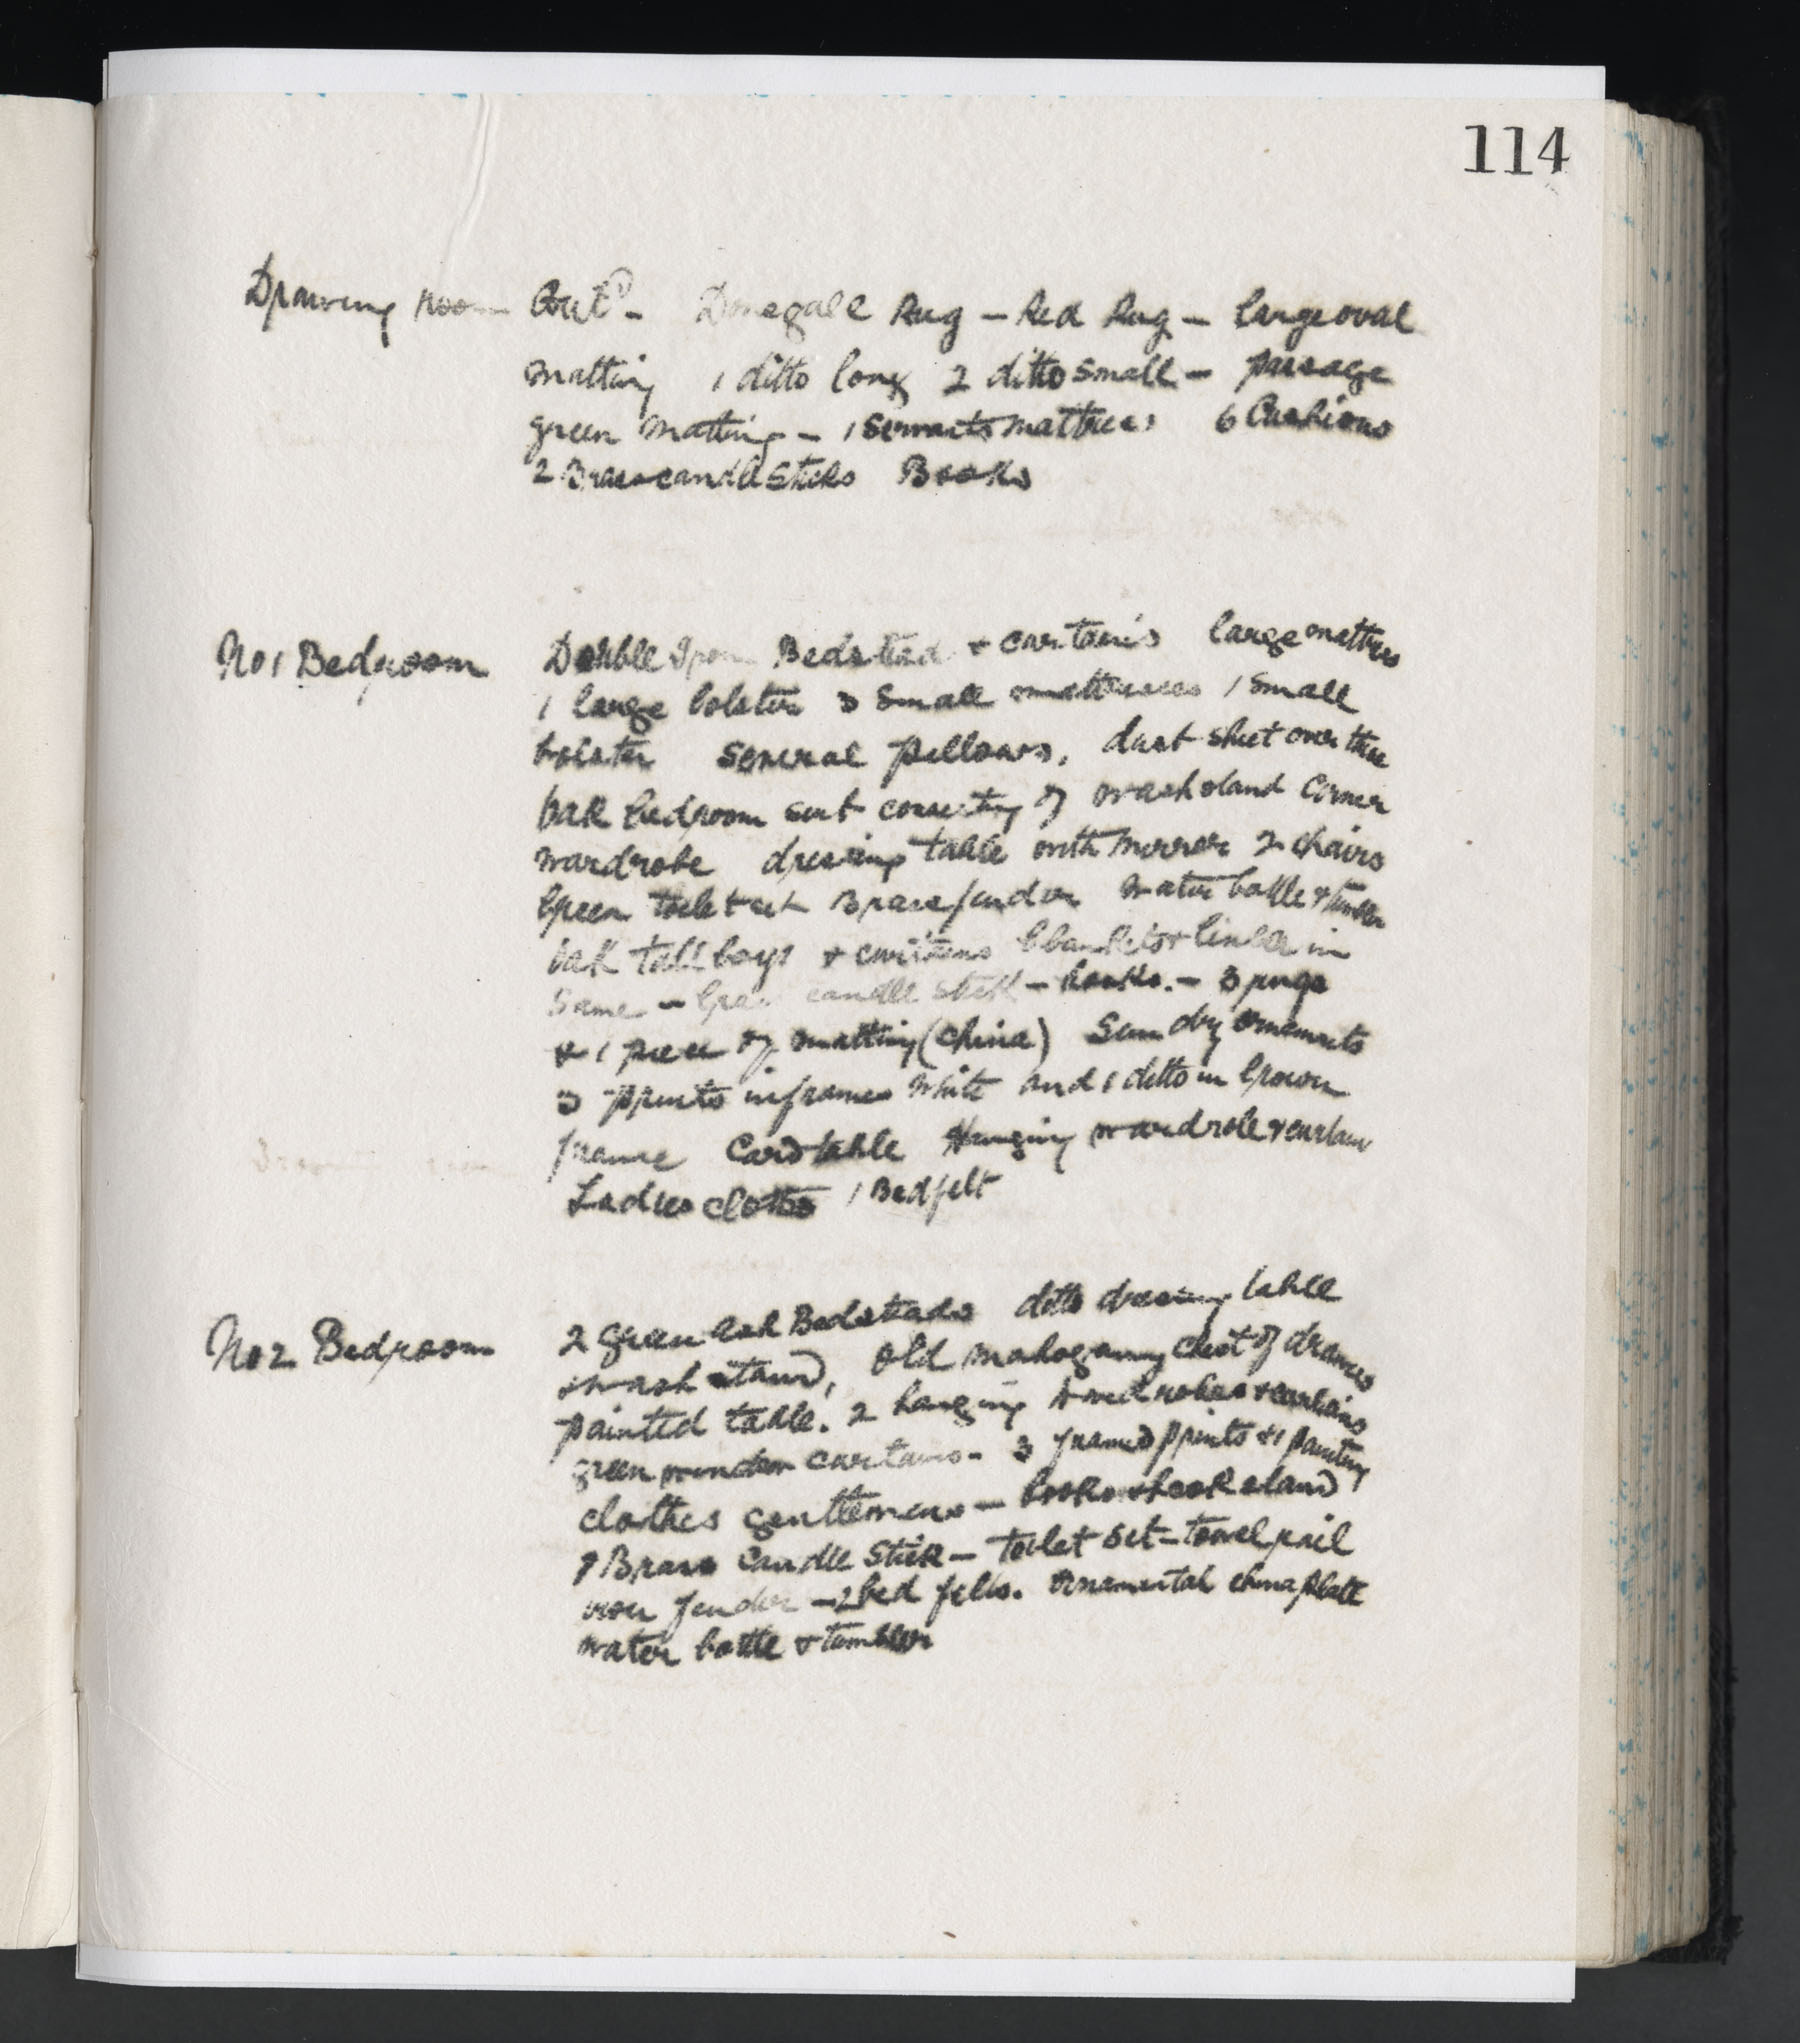 114
Drawing room Contd - Donegall Rug - Red Rug - large oval
matting 1 ditto long 2 ditto small - passage
green matting - 1 servants mattress 6 Cushions
2 Brass candle sticks Books
No 1 Bedroom Double Iron Bedstead & curtains large mattress
1 large bolster 3 small mattresses 1 small
bolster several pillows, dust sheet over these
oak bedroom suit consisting of washstand corner
wardrobe dressing table with mirror 2 chairs
Green toilet set Brass fender water bottle & tumbler
oak tall boys & curtains blankets & linen in
same - candle stick - books. - 3 rugs
& 1 piece of matting (china) Sundry ornaments
3 prints in frames white and 1 ditto in brown
frame Card table Hanging wardrobe & curtain
Ladies clothes 1 Bed felt
No 2 Bedroom 2 green ash Bedsteads ditto dressing table
wash stand, old mahogany chest of drawers
painted table. 2 hanging wardrobes & curtains
green window curtains - 3 framed prints & 1 painting
clothes gentlemens - books & book stand
Brass candle stick - toilet set - towel rail
iron fender - 2 bed felts. Ornamental china plate
water bottle & tumbler